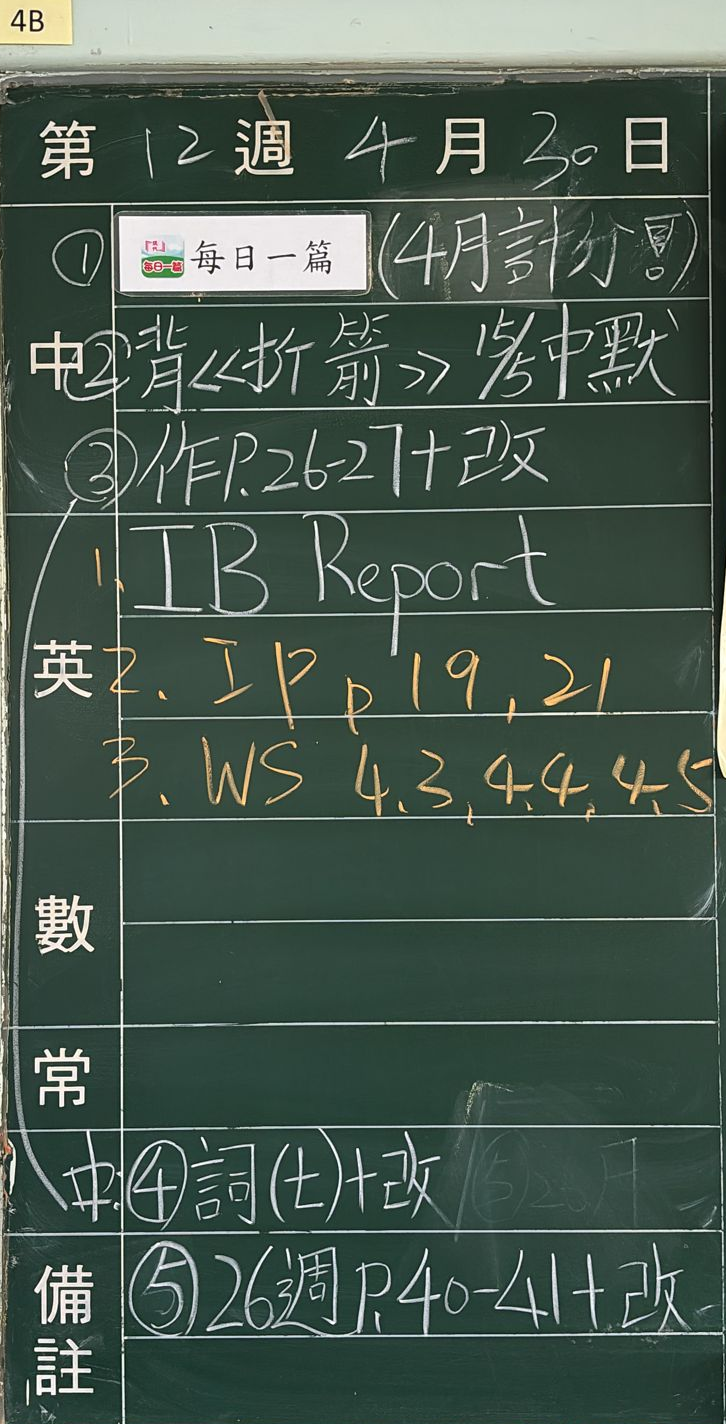 4B
第 12 週 4 月 30 日
① 每日一篇 (4月計分
中 ② 背《折箭》 15/5中默
③ 作P.26-27+改
1. IB Report
英 2. IP p 19, 21
3. WS 4.3, 4.4, 4.5
數
常
中: ④ 詞(七)+改
⑤ 26週 P.40-41+改
備註